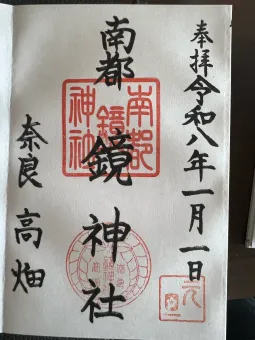 奉拝
令和八年一月一日
南都鏡神社
南都
鏡
神社
奈良高畑
元